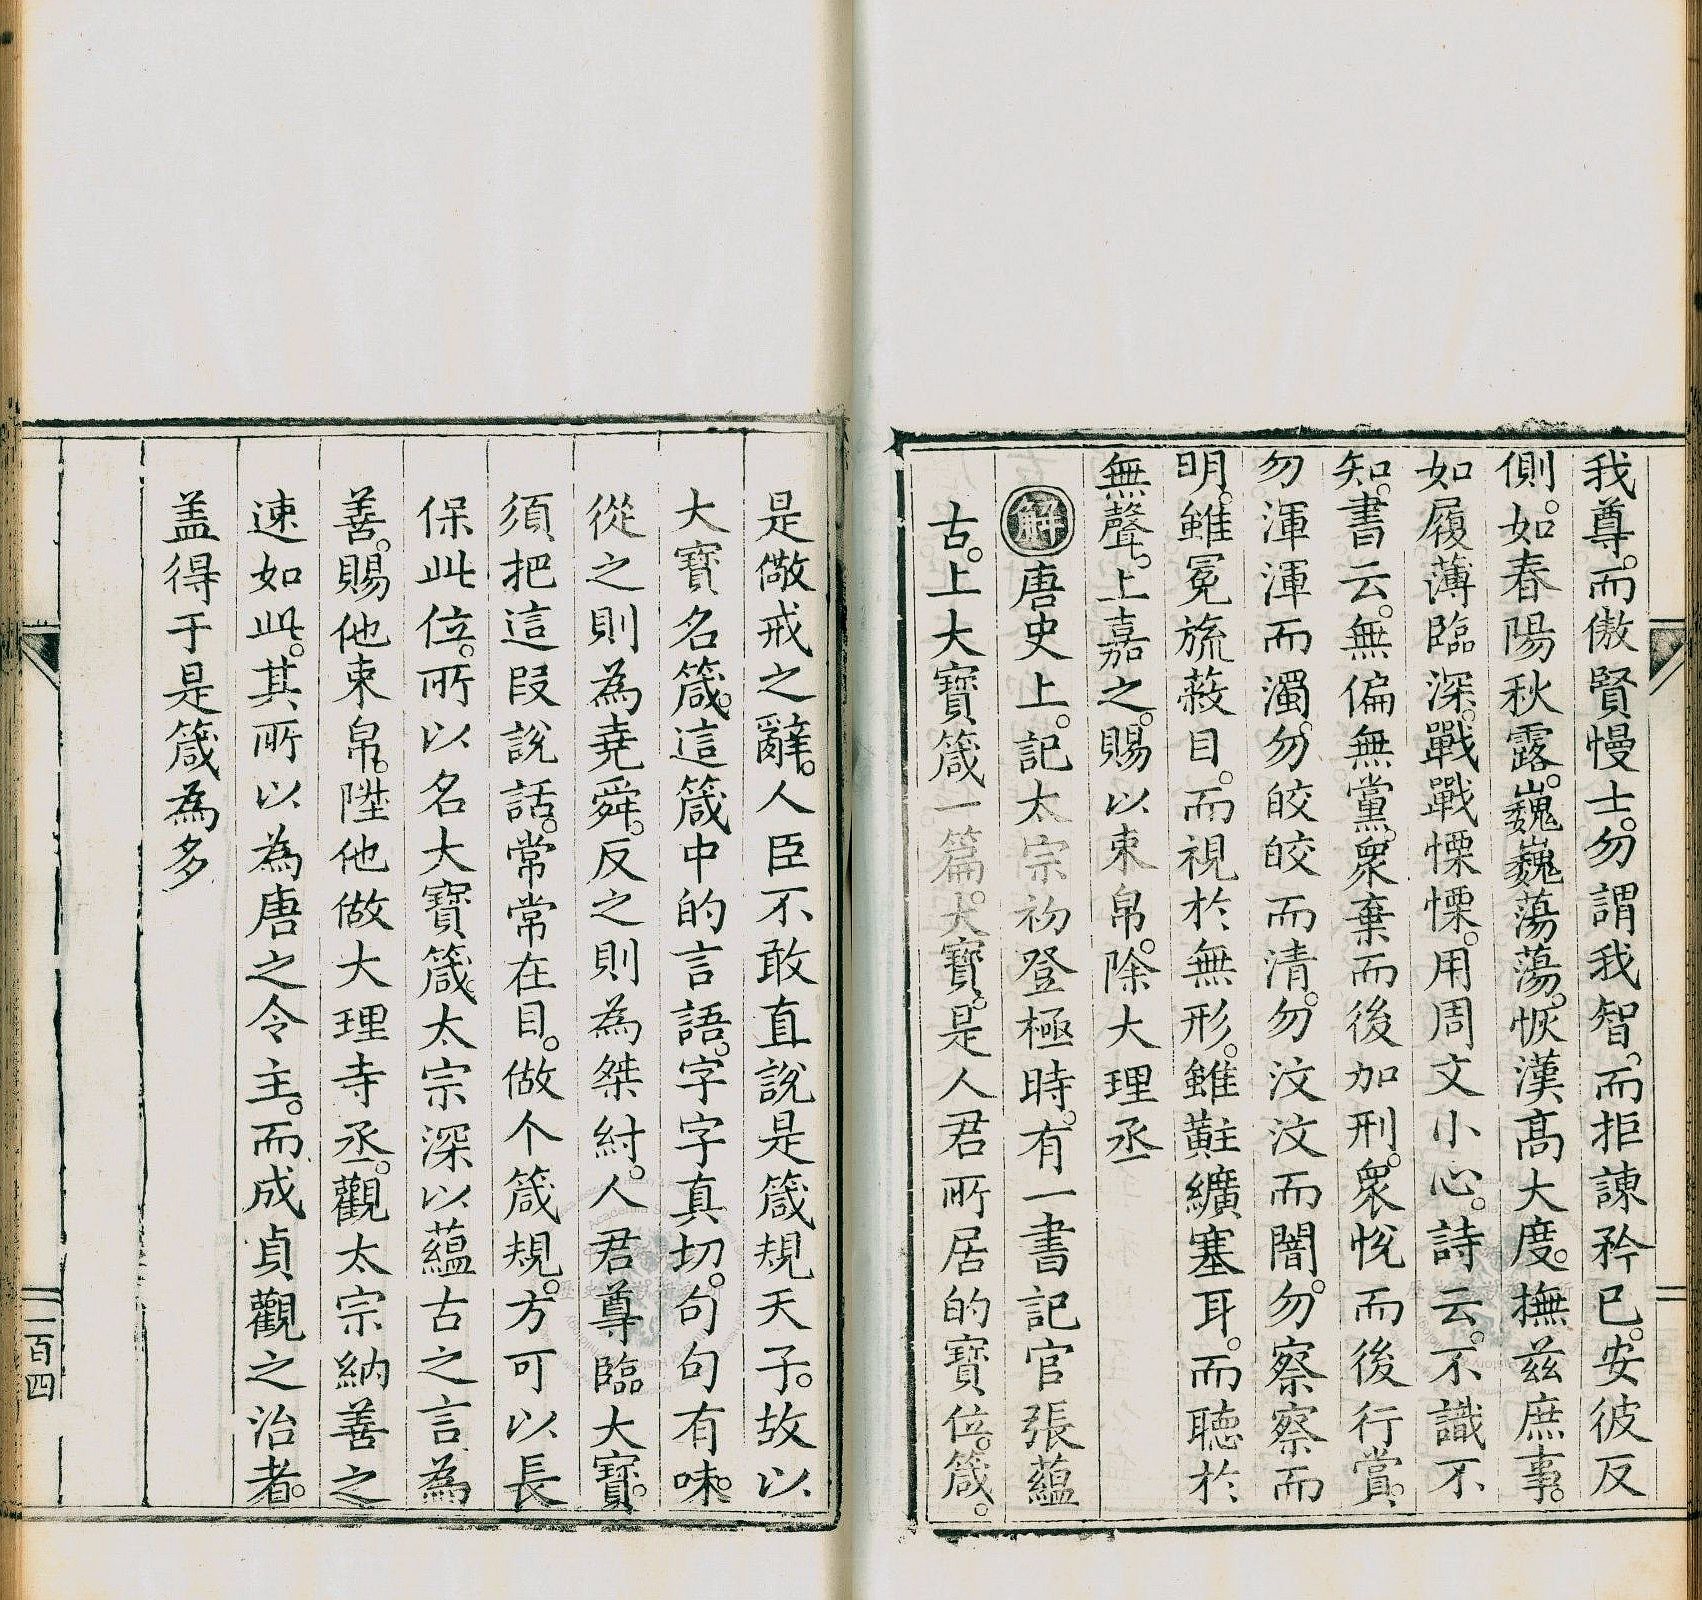 我尊。而傲賢慢士。勿謂我智。而拒諫矜已。安彼反
側。如春陽秋露。巍巍蕩蕩。恢漢高大度。撫茲庶事。
如履薄臨深。戰戰慄慄。用周文小心。詩云。不識不
知。書云。無偏無黨。衆棄而後加刑。衆悅而後行賞。
勿渾渾而濁。勿皎皎而清。勿汶汶而闇。勿察察而
明。雖冕旒蔽目。而視於無形。雖黈纊塞耳。而聽於
無聲。上嘉之。賜以束帛。除大理丞
解唐史上。記太宗初登極時。有一書記官張蘊
古。上大寶箴一篇。大寶。是人君所居的寶位。箴。
是儆戒之辭。人臣不敢直說是箴規天子。故以
大寶名箴。這箴中的言語。字字真切。句句有味。
從之則為堯舜。反之則為桀紂。人君尊臨大寶。
須把這段說話。常常在目。做个箴規。方可以長
保此位。所以名大寶箴。太宗深以蘊古之言為
善。賜他束帛。陞他做大理寺丞。觀太宗納善之
速如此。其所以為唐之令主。而成貞觀之治者。
盖得于是箴為多
二百四